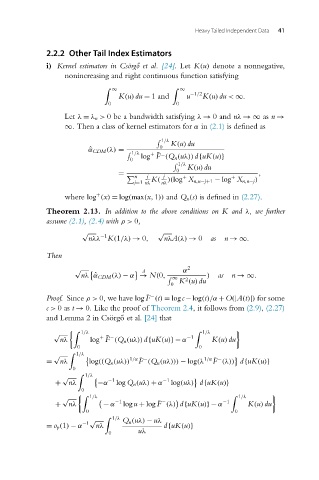 Heavy Tailed Independent Data 41
2.2.2 Other Tail Index Estimators
i) Kernel estimators in Csörgő et al. [24]. Let K(u) denote a nonnegative,
nonincreasing and right continuous function satisfying
∫_0^∞ K(u) du = 1 and ∫_0^∞ u^{−1/2} K(u) du < ∞.
Let λ = λ_n > 0 be a bandwidth satisfying λ → 0 and nλ → ∞ as n →
∞. Then a class of kernel estimators for α in (2.1) is defined as
α̂_{CDM}(λ) = ∫_0^{1/λ} K(u) du / ∫_0^{1/λ} log^+ F̄^−(Q_n(uλ)) d{uK(u)}
= ∫_0^{1/λ} K(u) du / ∑_{j=1}^n (j/nλ) K(j/nλ)(log^+ X_{n,n−j+1} − log^+ X_{n,n−j}),
where log^+(x) = log(max(x, 1)) and Q_n(s) is defined in (2.27).
Theorem 2.13. In addition to the above conditions on K and λ, we further
assume (2.1), (2.4) with ρ > 0,
√nλ λ^{−1} K(1/λ) → 0, √nλ A(λ) → 0 as n → ∞.
Then
√nλ {α̂_{CDM}(λ) − α} →^d N(0, α² / ∫_0^∞ K²(u) du) as n → ∞.
Proof. Since ρ > 0, we have log F̄^−(t) = log c − log(t)/α + O(|A(t)|) for some
c > 0 as t → 0. Like the proof of Theorem 2.4, it follows from (2.9), (2.27)
and Lemma 2 in Csörgő et al. [24] that
√nλ {∫_0^{1/λ} log^+ F̄^−(Q_n(uλ)) d{uK(u)} − α^{−1} ∫_0^{1/λ} K(u) du}
= √nλ ∫_0^{1/λ} {log((Q_n(uλ))^{1/α} F̄^−(Q_n(uλ))) − log(λ^{1/α} F̄^−(λ))} d{uK(u)}
+ √nλ ∫_0^{1/λ} {−α^{−1} log Q_n(uλ) + α^{−1} log(uλ)} d{uK(u)}
+ √nλ {∫_0^{1/λ} (−α^{−1} log u + log F̄^−(λ)) d{uK(u)} − α^{−1} ∫_0^{1/λ} K(u) du}
= o_p(1) − α^{−1} √nλ ∫_0^{1/λ} (Q_n(uλ) − uλ)/uλ d{uK(u)}